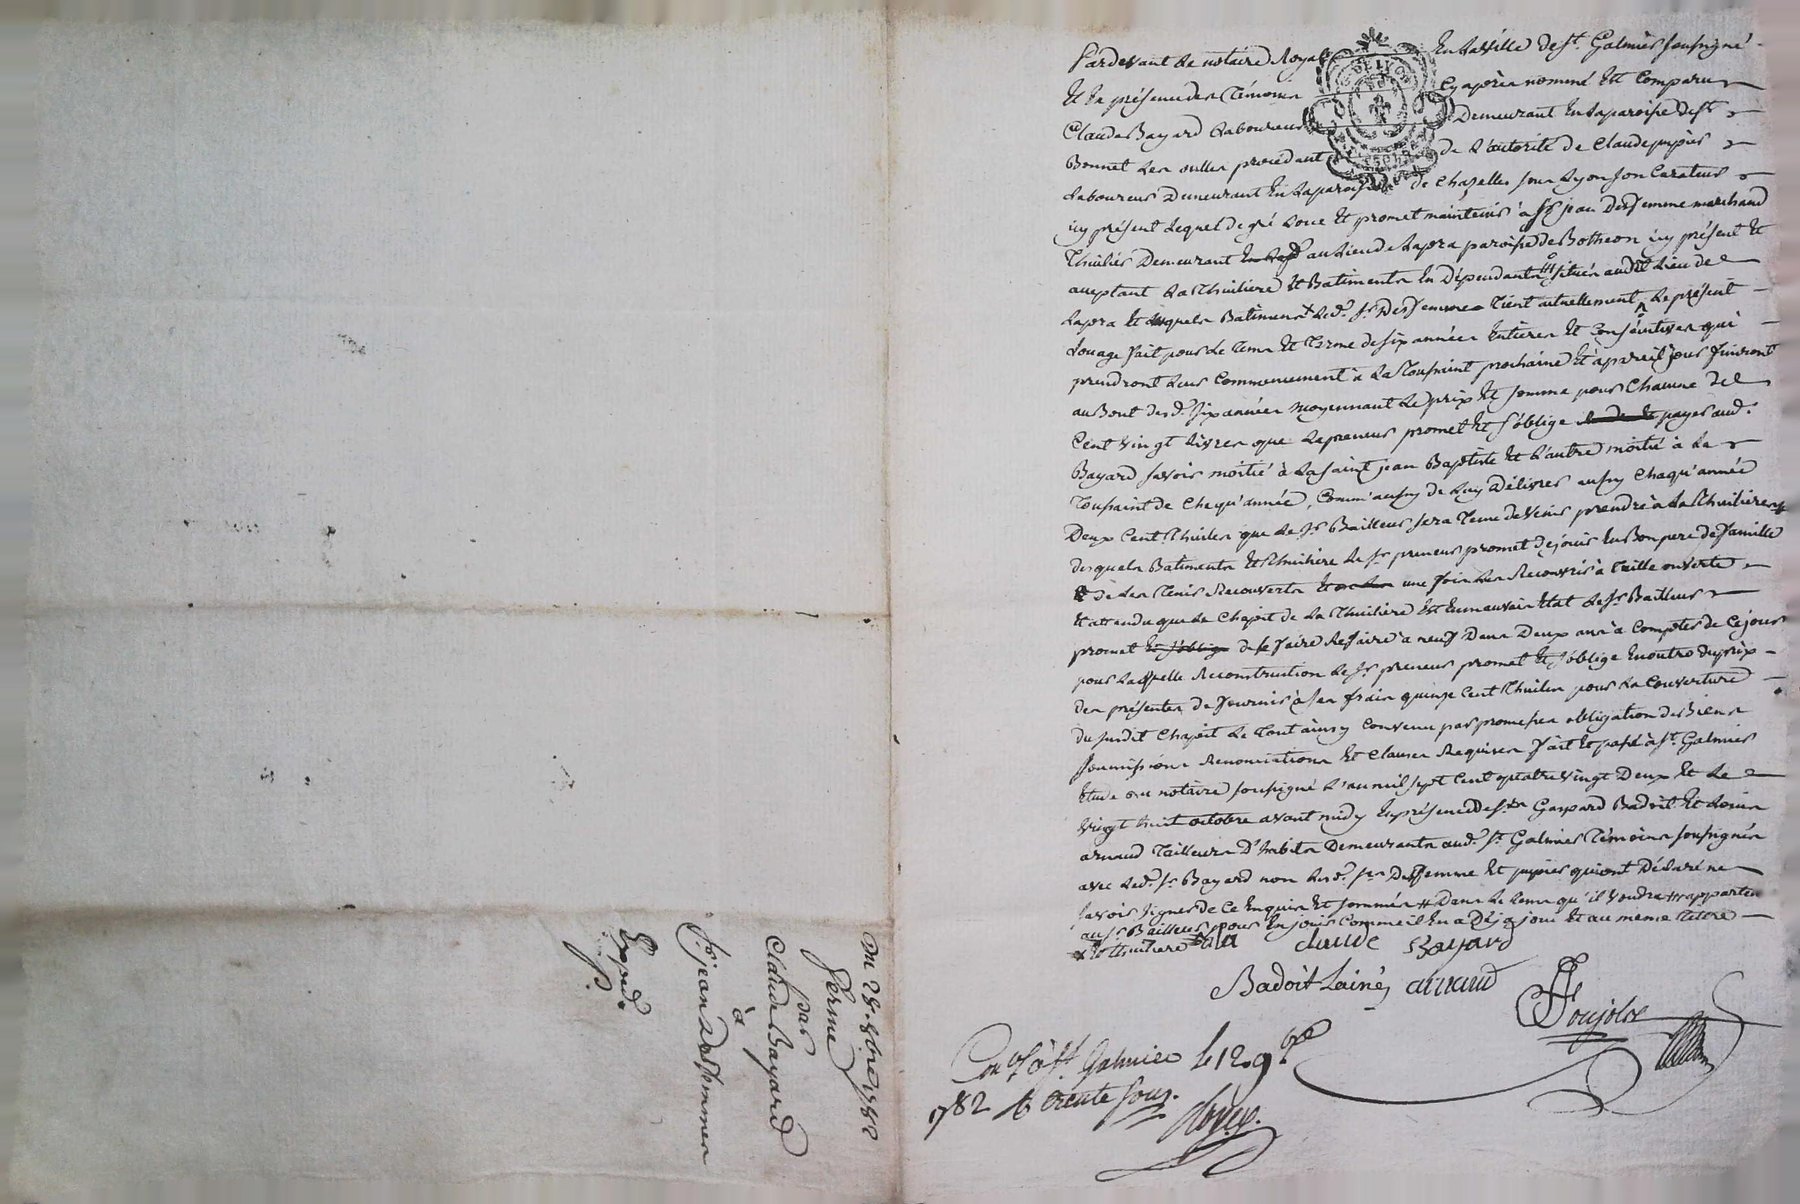 Pardevant le notaire Royal En la ville de St. Galmier soussigné
Et En présence des Témoins Cy après nommé Est Comparu
Claude Bayard Laboureur Demeurant En la paroisse de St
Bonnet Les oulles procedant de L'autorité de Claude pupier
Laboureur Demeurant En la paroisse de Chazelles sur Lyon son Curateur
icy présent Lequel de gré Loue Et promet maintenir à Sr jean Desfemme marchand
Thuilier Demeurant au Lieu de Lapra paroisse de Botheon icy présent Et
aceptant La Thuiliere Et Batiments En Dépendants situés audit Lieu de
Lapra Et desquels Batiments Led. Sr Desfemme Tient actuellement Le présent
Louage fait pour Le Tems Et Terme de six années Entieres Et Consécutives qui
prendront Leur Commencement à La Toussaint prochaine Et à pareil jour finiront
au Bout desd. six années moyennant Le prix Et somme pour Chacune de
Cent vingt Livres que Le preneur promet Et s'oblige payer aud.
Bayard savoir moitié à La saint jean Baptiste Et L'autre moitié à La
Toussaint de Chaqu'année, Comm'aussy de Luy Délivrer aussy Chaqu'année
Deux Cent Thuiles que Le Sr Bailleur sera Tenu de venir prendre à La Thuiliere
desquels Batiments Et Thuiliere Le Sr preneur promet de jouir En Bon pere de famille
de Les Tenir Recouverts une fois Les Recouvrir à Taille ouverte
Et attendu que Le Chapit de La Thuiliere Est En mauvais Etat Le Sr Bailleur
promet Et s'oblige de Le faire Refaire à neuf Dans Deux ans à Compter de Ce jour
pour Laquelle Reconstruction Le Sr preneur promet Et s'oblige En outre du prix
des présentes de fournir à ses frais quinze Cent Thuiles pour La Couverture
du susdit Chapit Le Tout ainsy Convenu par promesses obligation de Biens
soumissions Renonciations Et Clauses Requises fait Et passé à St. Galmier
Etude du notaire soussigné L'an mil sept Cent quatre vingt Deux Et Le
vingt huit octobre avant midy En présence de Srs Gaspard Badoit Et Louis
arnaud Tailleurs D'habits Demeurants aud. St. Galmier Témoins soussignés
avec Led. Sr Bayard non Lesd. Srs Desfemme Et pupier qui ont Déclaré ne
savoir signer de Ce Enquis Et sommés # Dans Le Tems qu'il voudra ## apparten
au Sr Bailleur pour En jouir Comme il En a Déja joui Et au même Tittre
x La Thuiliere
claude Bayard
Badoit Lainé arnaud
Poujolse
Con.lé à St. Galmier le 12. 9bre
1782 R trente sous.
Du 28. 8bre 1782
Ferme
par
Claude Bayard
à
Sr jean Desfemmes
Exped.